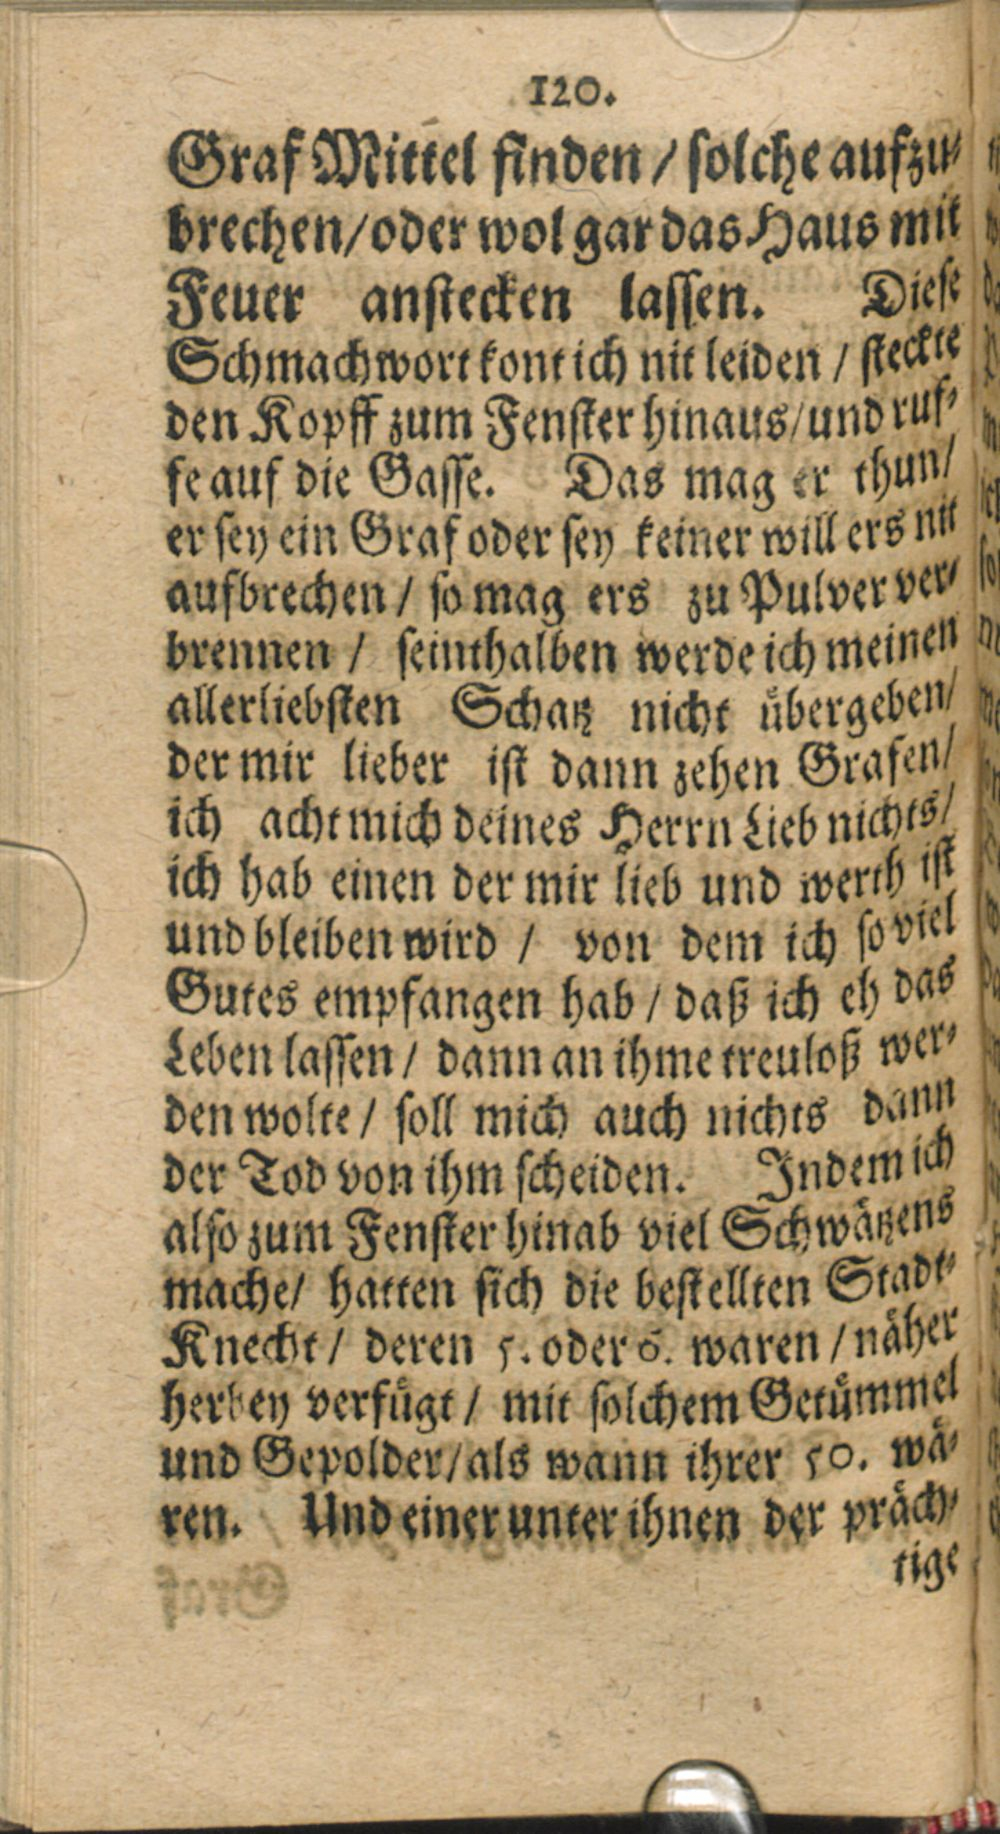 120.
Graf Mittel finden / solche aufzu-
brechen/oder wol gar das Haus mit
Feuer anstecken lassen. Diese
Schmachwort kont ich nit leiden / steckte
den Kopff zum Fenster hinaus/und ruf-
fe auf die Gasse. Das mag er thun/
er sey ein Graf oder sey keiner will ers nit
aufbrechen / so mag ers zu Pulver ver-
brennen / seinthalben werde ich meinen
allerliebsten Schatz nicht übergeben/
der mir lieber ist dann zehen Grafen/
ich acht mich deines Herrn Lieb nichts/
ich hab einen der mir lieb und werth ist
und bleiben wird / von dem ich so viel
Gutes empfangen hab / daß ich eh das
Leben lassen / dann an ihme treuloß wer-
den wolte / soll mich auch nichts dann
der Tod von ihm scheiden. Indem ich
also zum Fenster hinab viel Schwätzens
mache/ hatten sich die bestellten Stadt-
Knecht / deren 5. oder 6. waren / näher
herbey verfügt / mit solchem Getümmel
und Gepolder/als wann ihrer 50. wä-
ren. Und einer unter ihnen der präch-
tige